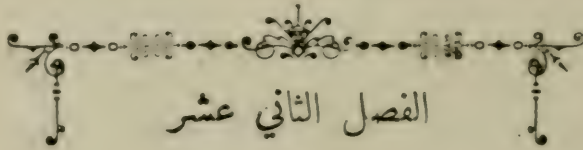 الفصل الثاني عشر